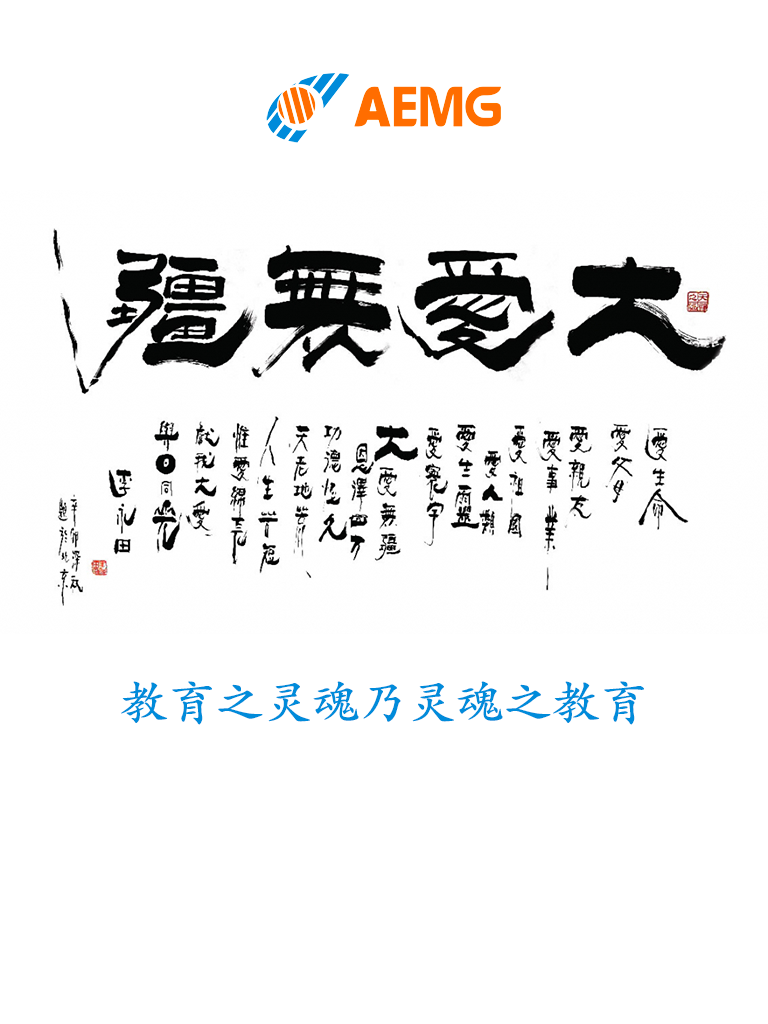 AEMG
大愛無疆
愛生命
愛父母
愛親友
愛事業
愛祖國
愛人類
愛生靈
愛寰宇
大愛無疆
恩澤四方
功德恆久
天老地荒
人生苦短
惟愛綿長
獻我大愛
與日同光
李永田
辛卯深秋
題於北京
教育之灵魂乃灵魂之教育